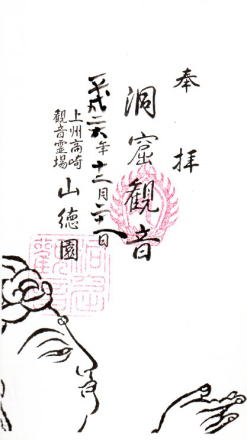 奉拝
洞窟観音
平成二六年十二月二十一日
上州高崎
観音霊場
山徳園